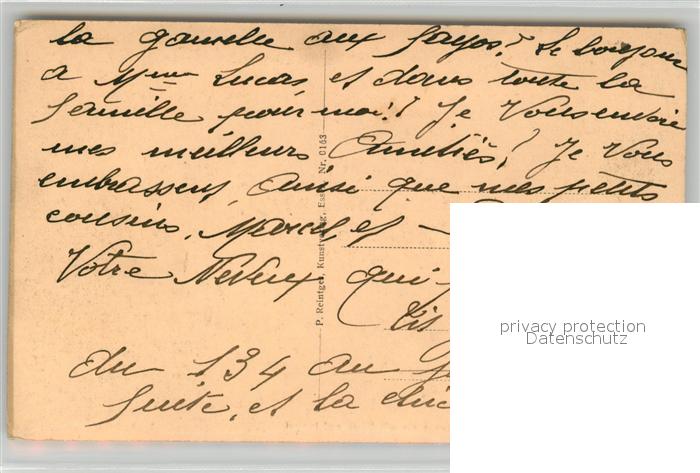 la gamelle aux Le bonjour
a Mme Lucas et dans toute la
famille pour moi! Je Vous envoie
mes meilleurs Amitiés! Je Vous
embrasseuf ainsi que mes petits
cousins, Marcel, et —
Votre Neveux qui
du 134 au
suite, et la
P. Reintges, Kunstverlag, Essen Nr. 0163
privacy protection
Datenschutz